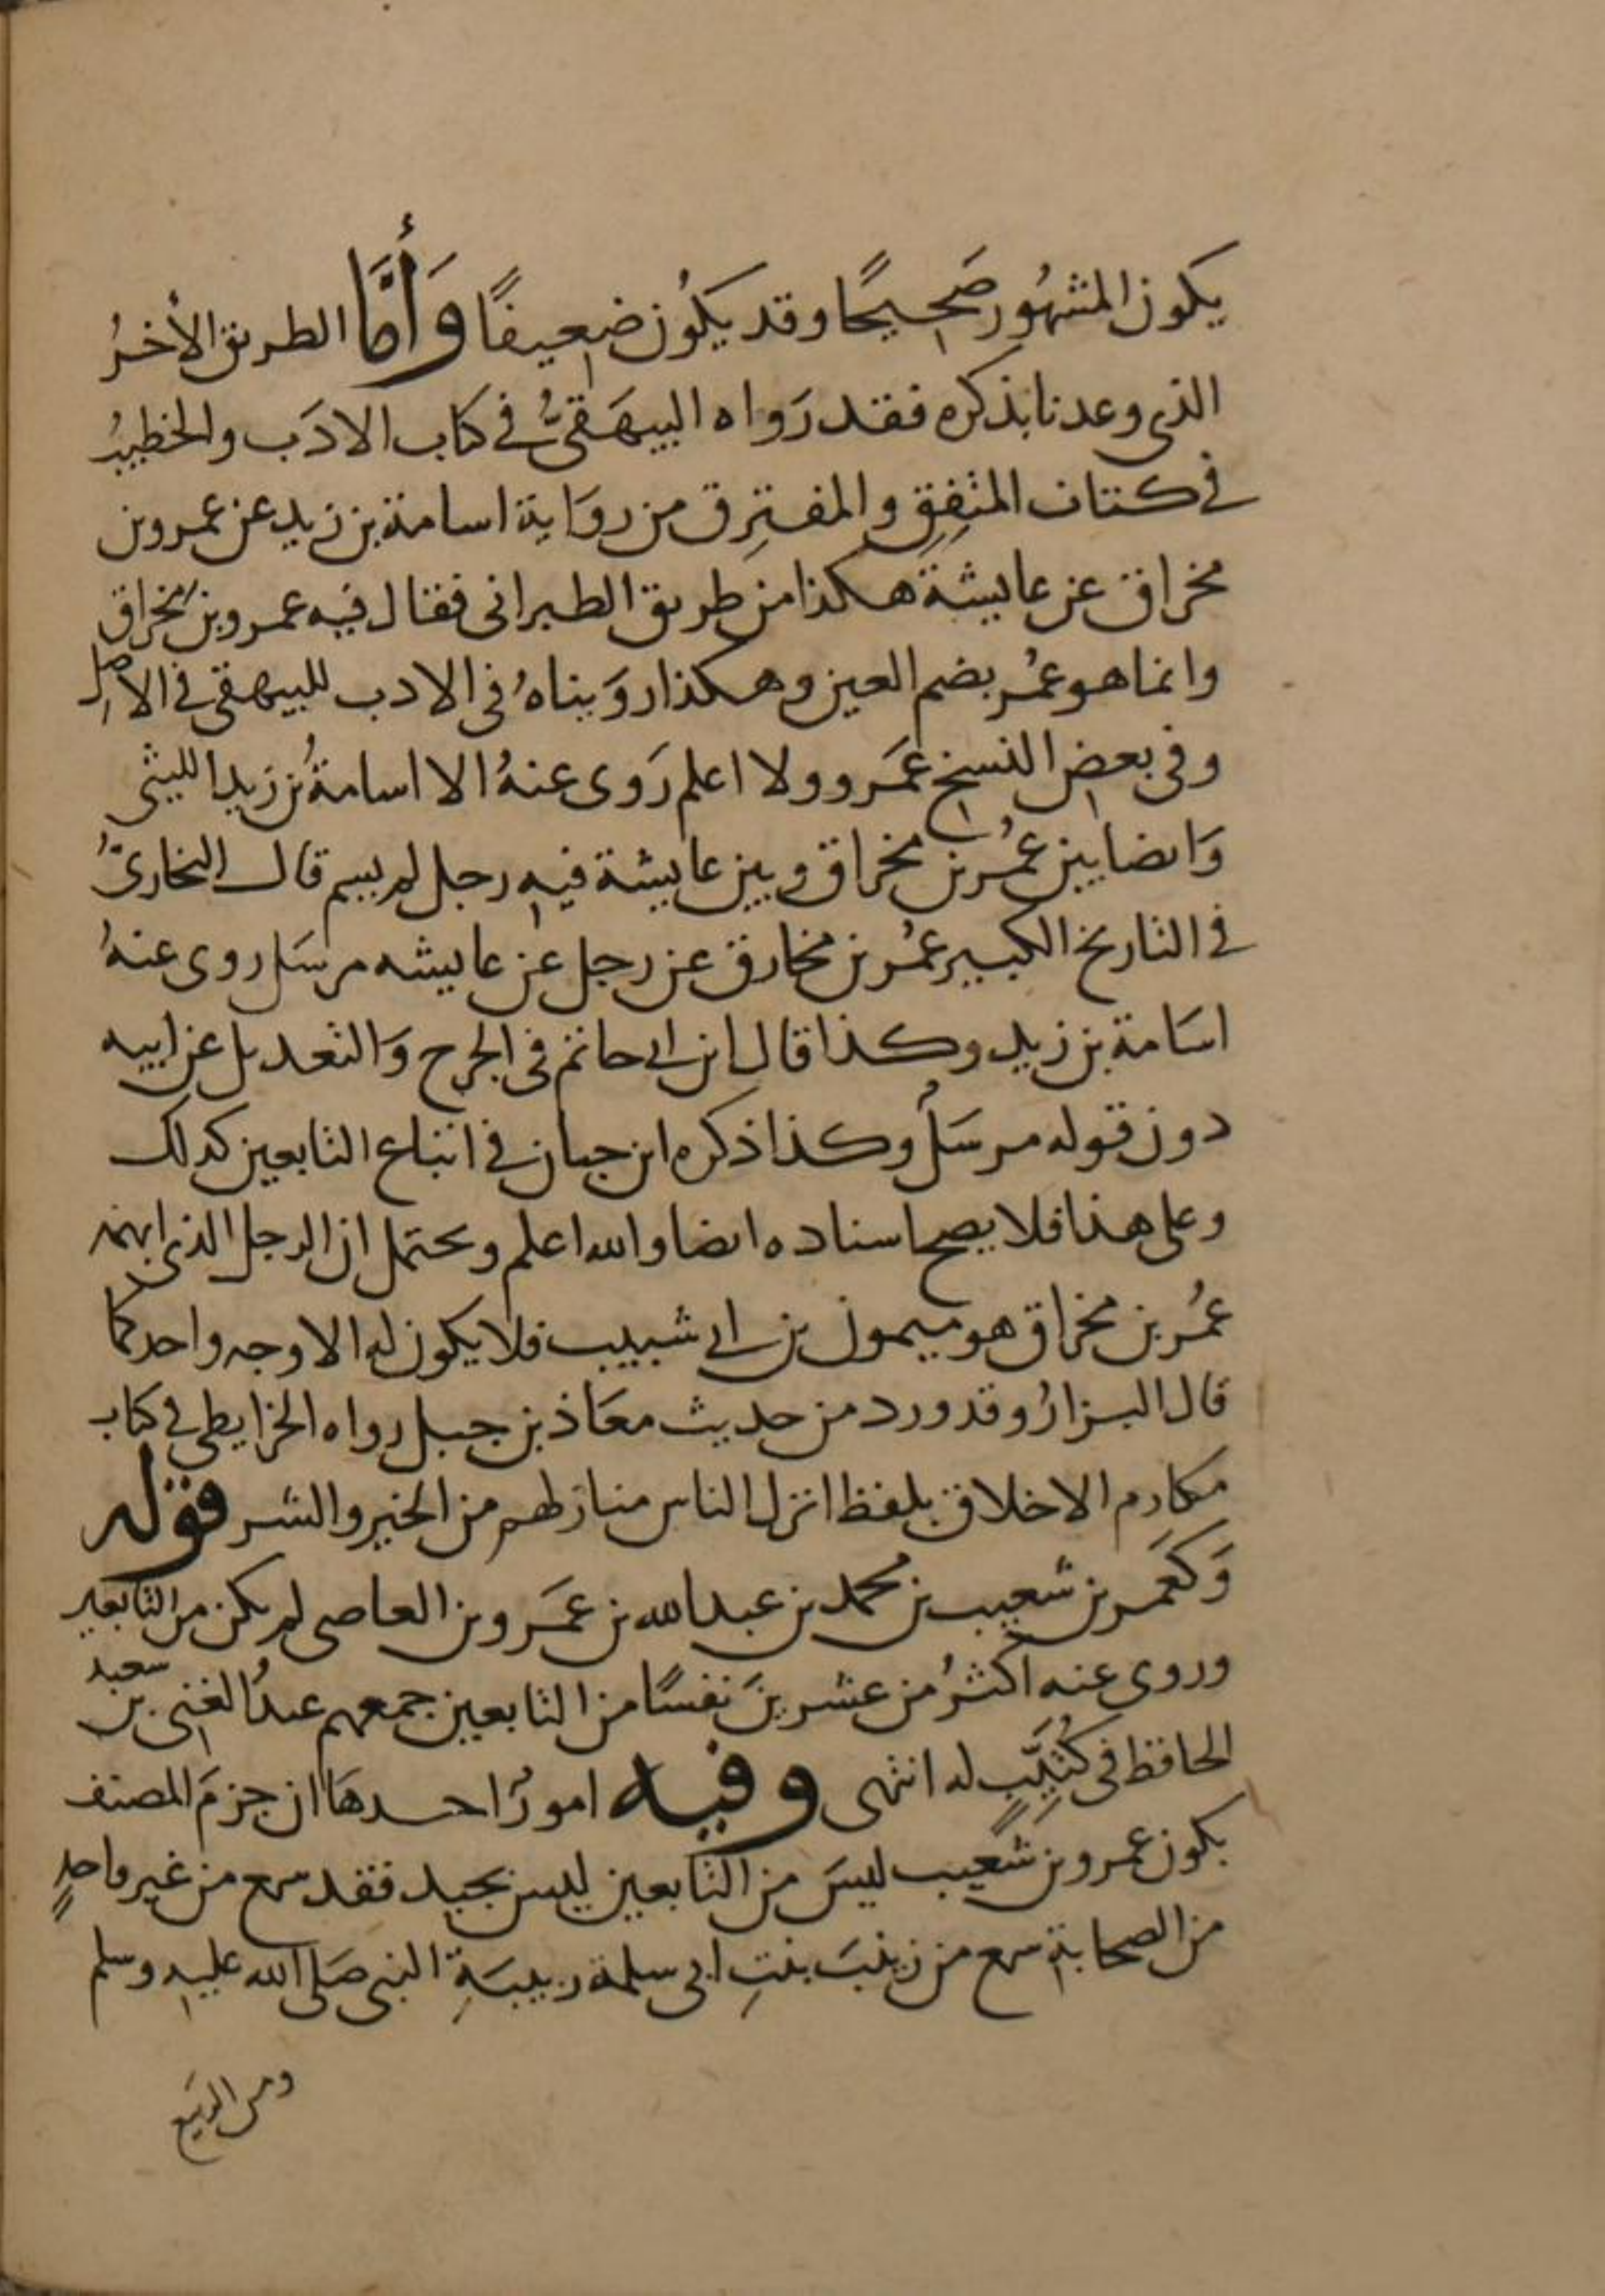 يكون المشهُور صَحيحًا وقد يكُون ضعيفًا وَأمَّا الطريق الأخرُ
الذى وعدنا بذكره فقد رَواه البيهَقىُّ فى كتاب الادَب والخطيبُ
فى كتاب المتفِقِ والمفترِق من روَاية اسامة بن زيد عن عمرو بن
مخراق عن عايشة هكذا من طريق الطبرانى فقال فيه عمرو بن مخراق
وانما هو عمُر بضم العين وهكذا روَيناهُ فى الادب للبيهقى فى الاصل
وفى بعض النسخ عَمرو ولا اعلم رَوى عنهُ الا اسامةُ بن زيد الليثى
وَايضا بين عمُر بن مخراق وبين عايشة فيه رجل لم يسم قال البخارىُّ
فى التاريخ الكبير عمُر بن مخارق عن رجل عن عايشه مرسَل روى عنهُ
اسَامة بن زيد وكذا قال ابن ابى حاتم فى الجرح وَالتعديل عن ابيه
دون قوله مرسَلٌ وكذا ذكره ابن حبان فى اتباع التابعين كذلك
وعلى هذا فلا يصح اسناده ايضا والله اعلم ويحتمل ان الرجل الذى ابهمه
عمُر بن مخراق هو ميمون بن ابى شبيب فلا يكون له الا وجه واحد كما
قال البزارُ وقد ورد من حديث معَاذ بن جبل رواه الخرايطى فى كتاب
مكارم الاخلاق بلفظ انزل الناس منازلهم من الخير والشر قوله
وَكعَمر بن شعيب بن محمد بن عبد الله بن عَمرو بن العاصى لم يكن من التابعين
وروى عنه اكثرُ من عشرينَ نفسًا من التابعين جمعهم عبدُ الغنى بن سعيد
الحافظ فى كُتيِّبٍ له انتهى وفيه امورٌ احدهَا ان جزمَ المصنف
بكون عمرو بن شعيب ليسَ من التابعين ليس بجيد فقد سمع من غير واحدٍ
من الصحابة سمع من زينبَ بنتِ ابى سلمة ربيبَةِ النبى صَلى الله عليه وسلم
ومن الربَيع